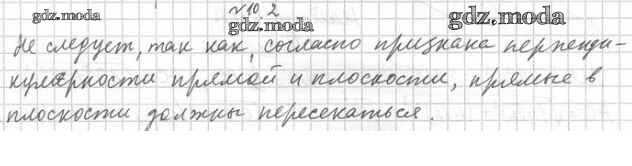 №10.2
gdz.moda gdz.moda gdz.moda
Не следует, так как, согласно признака перпенди-
кулярности прямой и плоскости, прямые в
плоскости должны пересекаться.